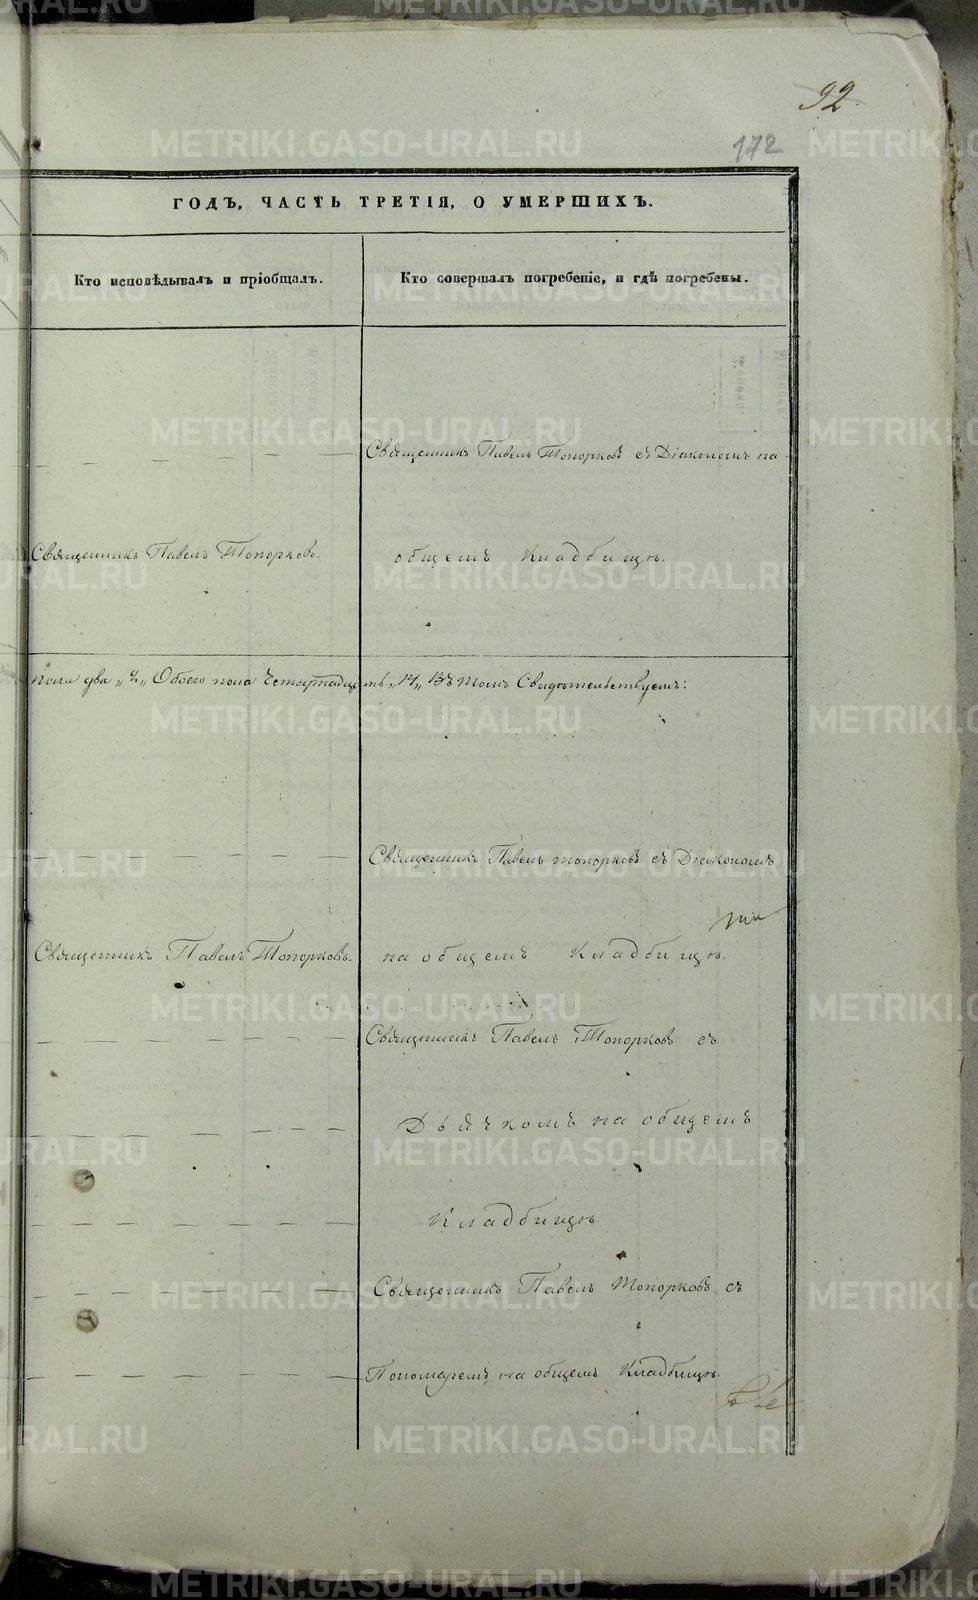 92
172
ГОДЪ, ЧАСТЬ ТРЕТІЯ, О УМЕРШИХЪ.
Кто исповѣдывалъ и пріобщалъ.
Кто совершалъ погребеніе, и гдѣ погребены.
Священникъ Павелъ Топорковъ съ Діакономъ на
Священникъ Павелъ Топорковъ.
общемъ Кладбищѣ.
пола два „2„ Обоего пола Четырнадцать „14„ Въ томъ Свидѣтельствуемъ:
Священникъ Павелъ топорковъ съ Діакономъ
Священникъ Павелъ Топорковъ.
на общемъ Кладбищѣ.
Священникъ Павелъ Топорковъ съ
Дьячкомъ на общемъ
Кладбищѣ
Священникъ Павелъ Топорковъ съ
Пономаремъ, на общемъ Кладбищѣ.
METRIKI.GASO-URAL.RU